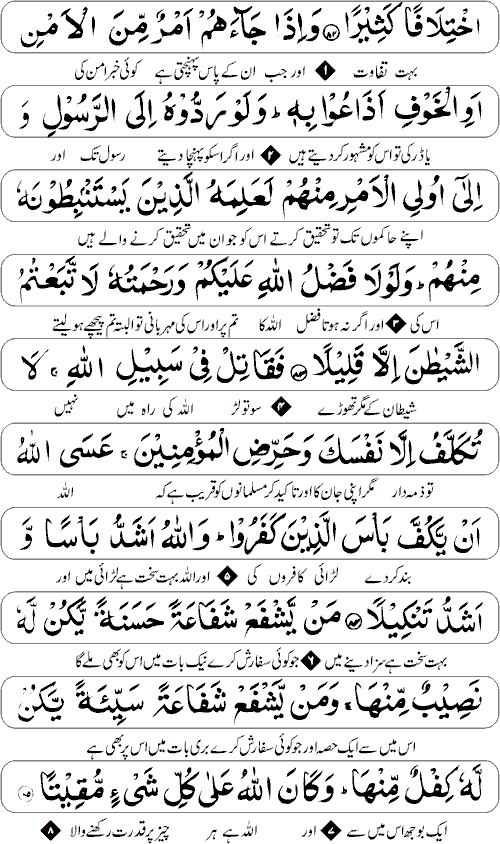 اخْتِلَافًا كَثِيْرًا ﴿۸۲﴾ وَاِذَا جَآءَهُمْ اَمْرٌ مِّنَ الْاَمْنِ
بہت تفاوت ۱ اور جب ان کے پاس پہنچتی ہے کوئی خبر امن کی
اَوِ الْخَوْفِ اَذَاعُوْا بِهٖ ؕ وَلَوْ رَدُّوْهُ اِلَى الرَّسُوْلِ وَ
یا ڈر کی تو اس کو مشہور کر دیتے ہیں ۲ اور اگر اسکو پہنچا دیتے رسول تک اور
اِلٰۤى اُولِى الْاَمْرِ مِنْهُمْ لَعَلِمَهُ الَّذِيْنَ يَسْتَنْۢبِطُوْنَهٗ
اپنے حاکموں تک تو تحقیق کرتے اس کو جو ان میں تحقیق کرنے والے ہیں
مِنْهُمْ ؕ وَلَوْلَا فَضْلُ اللّٰهِ عَلَيْكُمْ وَرَحْمَتُهٗ لَا تَّبَعْتُمُ
اس کی ۳ اور اگر نہ ہوتا فضل اللہ کا تم پر اور اس کی مہربانی تو البتہ تم پیچھے ہو لیتے
الشَّيْطٰنَ اِلَّا قَلِيْلًا ﴿۸۳﴾ فَقَاتِلْ فِىْ سَبِيْلِ اللّٰهِ ۚ لَا
شیطان کے مگر تھوڑے ۴ سو تو لڑ اللہ کی راہ میں نہیں
تُكَلَّفُ اِلَّا نَفْسَكَ وَحَرِّضِ الْمُؤْمِنِيْنَ ۚ عَسَى اللّٰهُ
تو ذمہ دار مگر اپنی جان کا اور تاکید کر مسلمانوں کو قریب ہے کہ اللہ
اَنْ يَّكُفَّ بَاْسَ الَّذِيْنَ كَفَرُوْا ؕ وَاللّٰهُ اَشَدُّ بَاْسًا وَّ
بند کر دے لڑائی کافروں کی ۵ اور اللہ بہت سخت ہے لڑائی میں اور
اَشَدُّ تَنْكِيْلًا ﴿۸۴﴾ مَنْ يَّشْفَعْ شَفَاعَةً حَسَنَةً يَّكُنْ لَّهٗ
بہت سخت ہے سزا دینے میں ۶ جو کوئی سفارش کرے نیک بات میں اس کو بھی ملے گا
نَصِيْبٌ مِّنْهَا ۚ وَمَنْ يَّشْفَعْ شَفَاعَةً سَيِّئَةً يَّكُنْ
اس میں سے ایک حصہ اور جو کوئی سفارش کرے بری بات میں اس پر بھی ہے
لَّهٗ كِفْلٌ مِّنْهَا ؕ وَكَانَ اللّٰهُ عَلٰى كُلِّ شَىْءٍ مُّقِيْتًا ﴿۸۵﴾
ایک بوجھ اس میں سے ۷ اور اللہ ہے ہر چیز پر قدرت رکھنے والا ۸